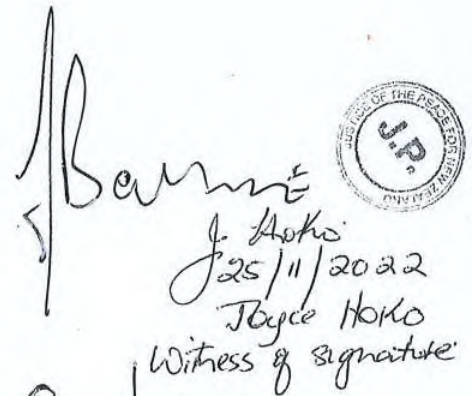 JUSTICE OF THE PEACE FOR NEW ZEALAND
J.P.
J. Hoko
25/11/2022
Joyce Hoko
Witness of signature